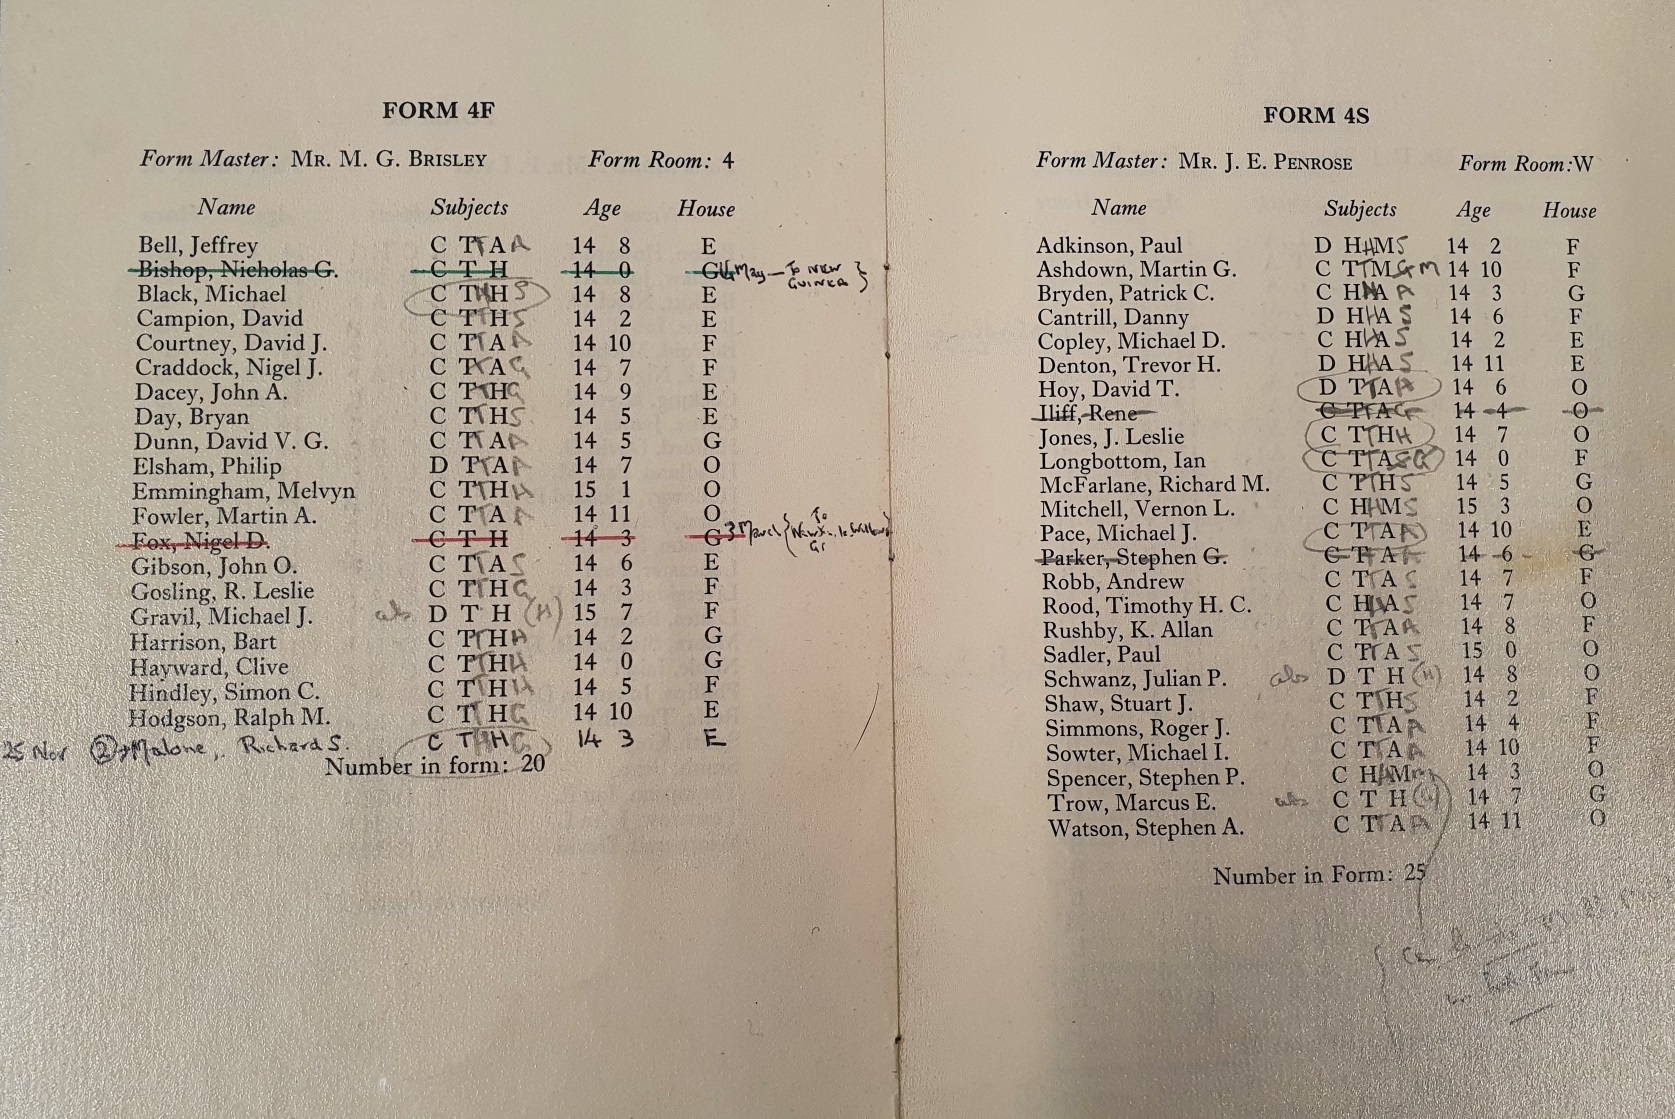 FORM 4F
Form Master: MR. M. G. BRISLEY Form Room: 4
Name Subjects Age House
Bell, Jeffrey C T T A A 14 8 E
Bishop, Nicholas G. C T H 14 0 G May — To NEW GUINEA }
Black, Michael C T H H S 14 8 E
Campion, David C T T H S 14 2 E
Courtney, David J. C T T A A 14 10 F
Craddock, Nigel J. C T T A G 14 7 F
Dacey, John A. C T T H G 14 9 E
Day, Bryan C T T H S 14 5 E
Dunn, David V. G. C T T A A 14 5 G
Elsham, Philip D T T A A 14 7 O
Emmingham, Melvyn C T T H H 15 1 O
Fowler, Martin A. C T T A A 14 11 O
Fox, Nigel D. C T H 14 3 G 3 March { To
Gibson, John O. C T T A S 14 6 E
Gosling, R. Leslie C T T H G 14 3 F
Gravil, Michael J. abs D T H (H) 15 7 F
Harrison, Bart C T T H H 14 2 G
Hayward, Clive C T T H H 14 0 G
Hindley, Simon C. C T T H H 14 5 F
Hodgson, Ralph M. C T T H G 14 10 E
25 Nov (2) → Malone, Richard S. C T H H G 14 3 E
Number in form: 20
FORM 4S
Form Master: MR. J. E. PENROSE Form Room: W
Name Subjects Age House
Adkinson, Paul D H H M S 14 2 F
Ashdown, Martin G. C T T M G M 14 10 F
Bryden, Patrick C. C H H A A 14 3 G
Cantrill, Danny D H H A S 14 6 F
Copley, Michael D. C H H A S 14 2 E
Denton, Trevor H. D H H A S 14 11 E
Hoy, David T. D T T A A 14 6 O
Iliff, Rene C T T A G 14 4 O
Jones, J. Leslie C T T H H 14 7 O
Longbottom, Ian C T T A S G 14 0 F
McFarlane, Richard M. C T T H S 14 5 G
Mitchell, Vernon L. C H H M S 15 3 O
Pace, Michael J. C T T A A 14 10 E
Parker, Stephen G. C T A 14 6 G
Robb, Andrew C T T A S 14 7 F
Rood, Timothy H. C. C H H A S 14 7 O
Rushby, K. Allan C T T A A 14 8 F
Sadler, Paul C T T A S 15 0 O
Schwanz, Julian P. abs D T H (H) 14 8 O
Shaw, Stuart J. C T T H S 14 2 F
Simmons, Roger J. C T T A A 14 4 F
Sowter, Michael I. C T T A A 14 10 F
Spencer, Stephen P. C H H M m 14 3 O
Trow, Marcus E. abs C T H (H) 14 7 G
Watson, Stephen A. C T T A A 14 11 O
Number in Form: 25